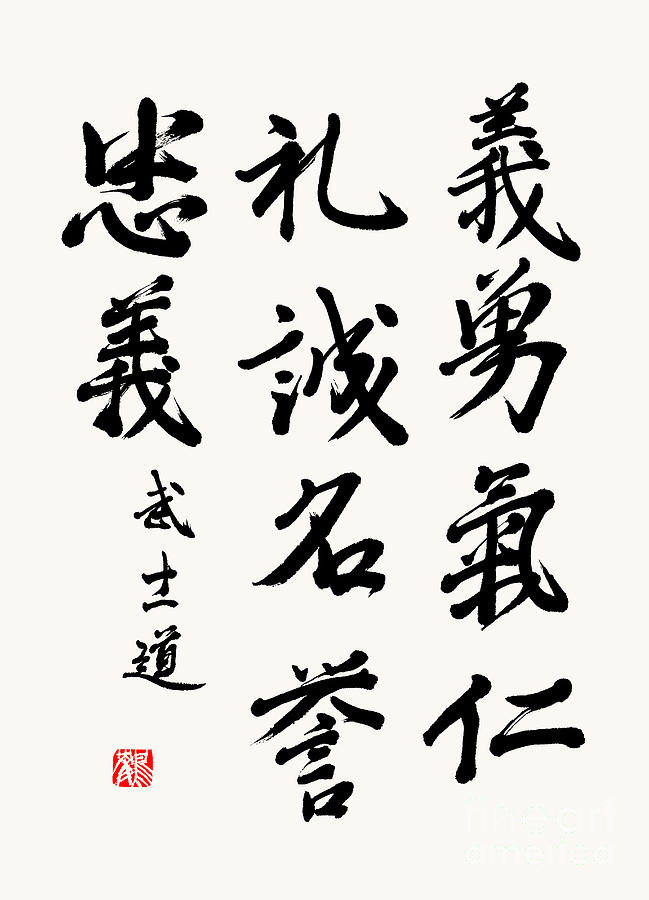 義勇氣仁
礼誠名誉
忠義
武士道
fine art
america